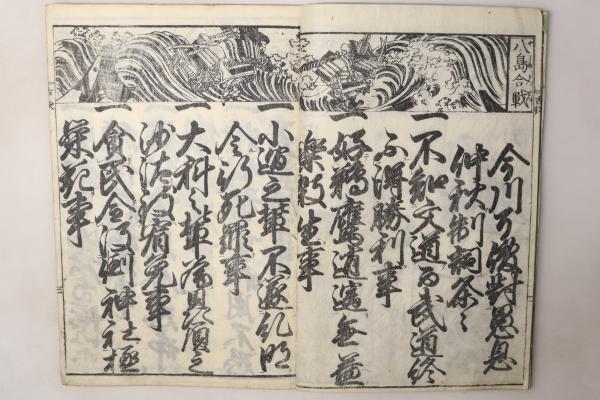 八島合戰
今川了俊對愚息
仲秋制詞条々
一不知文道而武道終
不得勝利事
一好鵜鷹逍遥無益
樂殺生事
一小過之輩不遂糺明
令行死罪事
一大科之輩為贔屓之
沙汰致宥免事
一貪民令没倒神社極
榮花事